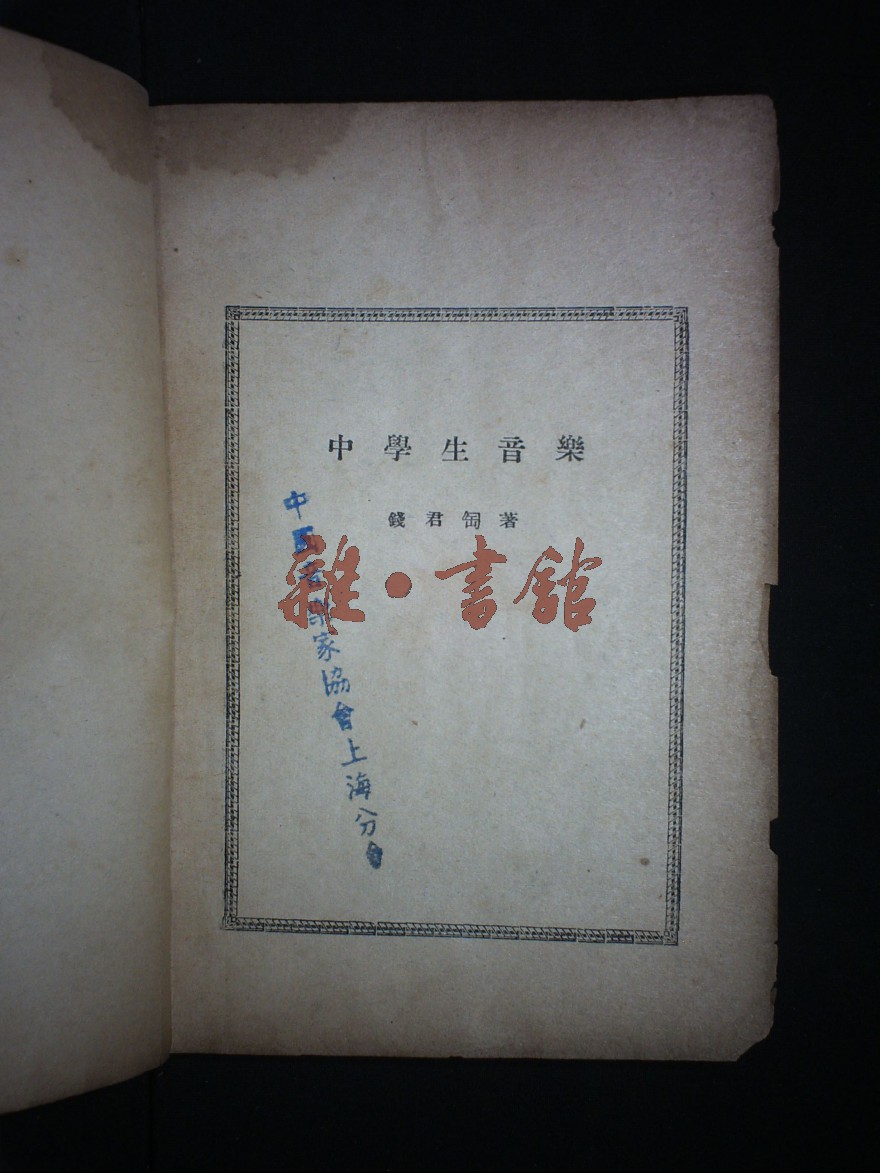 中學生音樂
錢君匋著
雜·書館
中國音樂家協會上海分會